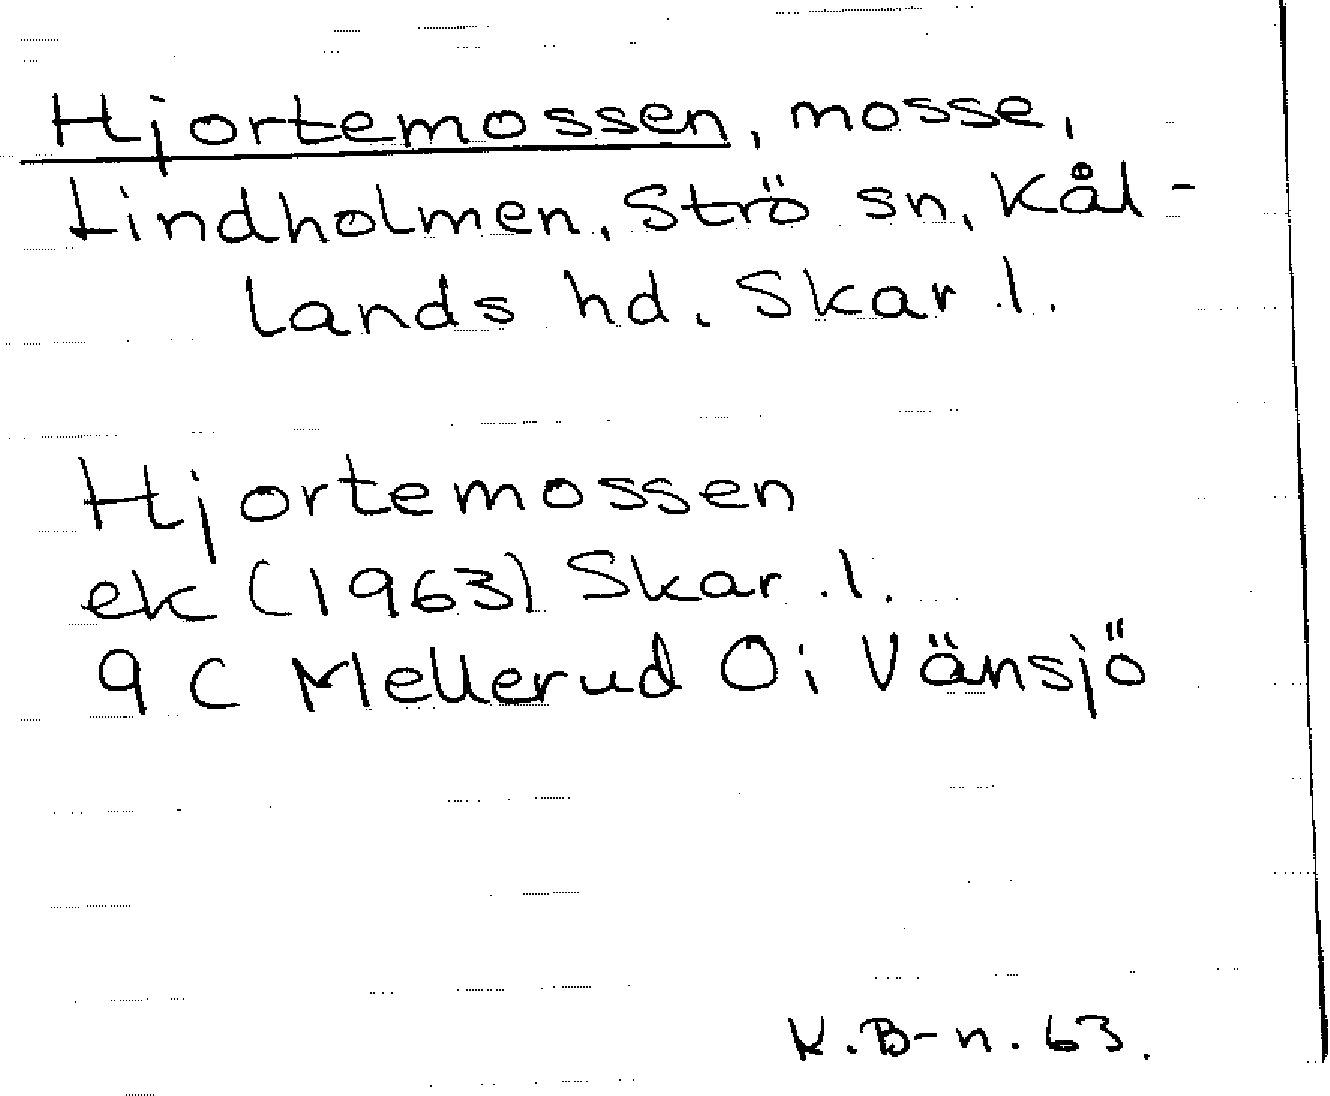 Hjortemossen, mosse,
Lindholmen, Strö sn, Kål-
lands hd. Skar.l.
Hjortemossen
ek (1963) Skar.l.
9 C Mellerud Oi Vänsjö
K.B-n. 63.